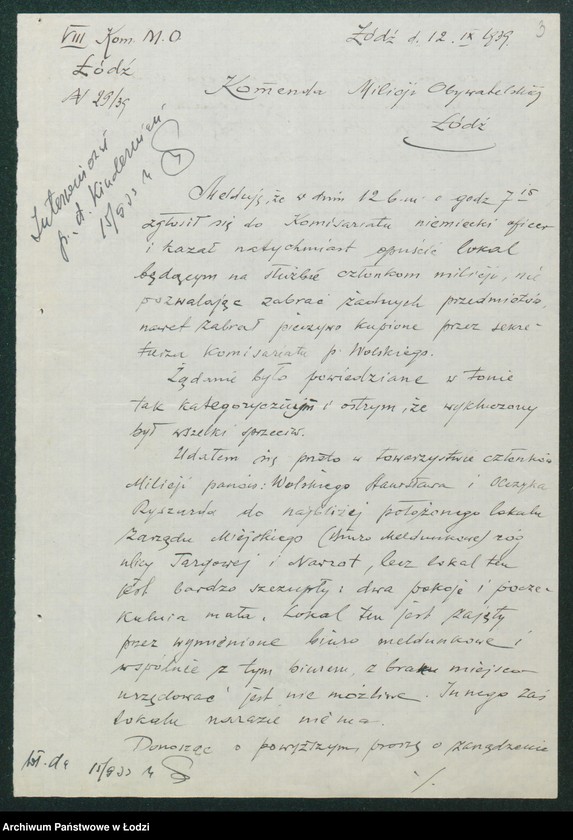 VIII Kom. M.O. Łódź d. 12. IX 1939. 3
Łódź
N 29/39
Komenda Milicji Obywatelskiej
Łódź
15/9 33
Melduję, że w dniu 12 b.m. o godz 7 15
zgłosił się do Komisariatu niemiecki oficer
i kazał natychmiast opuścić lokal
będącym na służbie członkom milicji, nie
pozwalając zabrać żadnych przedmiotów,
nawet zabrał pieczywo kupione przez sekre-
tarza Komisariatu p. Wolskiego.
Żądanie było powiedziane w tonie
tak kategorycznym i ostrym, że wykluczony
był wszelki sprzeciw.
Udałem się przeto w towarzystwie członków
Milicji panów: Wolskiego Stanisława i
Ryszarda do najbliżej położonego lokalu
Zarządu Miejskiego (Biuro Meldunkowe) róg
ulicy Targowej i Nawrot, lecz lokal ten
jest bardzo szczupły: dwa pokoje i pocze-
kalnia mała. Lokal ten jest zajęty
przez wymienione biuro meldunkowe i
wspólnie z tym biurem, z braku miejsca
urzędować jest nie możliwe. Innego zaś
lokalu narazie nie ma.
Donosząc o powyższym proszę o zarządzenie
15/9 33 ./.
Archiwum Państwowe w Łodzi